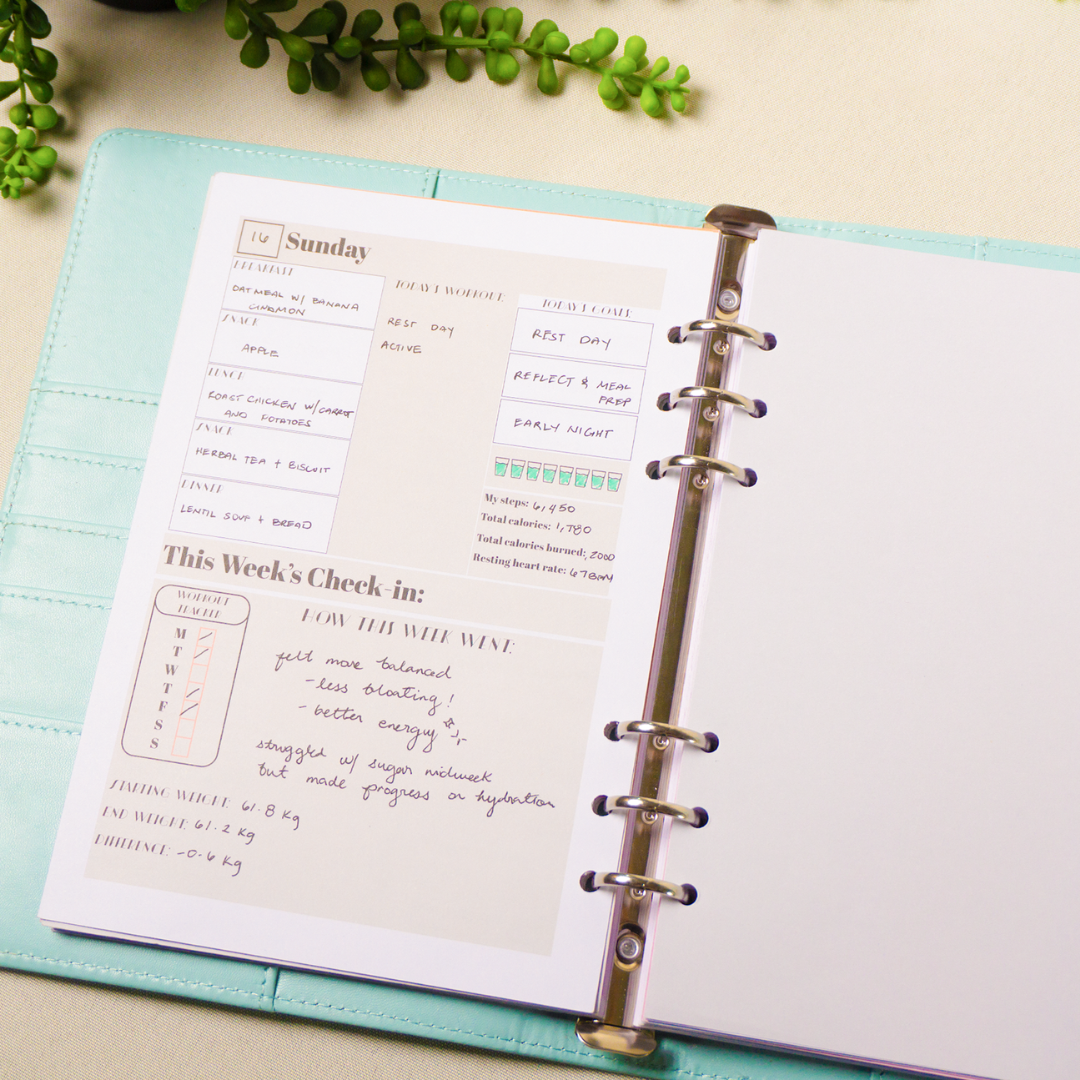 16 Sunday
BREAKFAST
OATMEAL W/ BANANA
CINAMON
SNACK
APPLE
LUNCH
ROAST CHICKEN W/ CARROT
AND POTATOES
SNACK
HERBAL TEA + BISCUIT
DINNER
LENTIL SOUP + BREAD
TODAY'S WORKOUT:
REST DAY
ACTIVE
TODAY'S GOALS:
REST DAY
REFLECT & MEAL
PREP
EARLY NIGHT
My steps: 6,450
Total calories: 1,780
Total calories burned: 2000
Resting heart rate: 67BPM
This Week's Check-in:
WORKOUT
TRACKER
M
T
W
T
F
S
S
HOW THIS WEEK WENT:
felt more balanced
- less bloating!
- better energy
struggled w/ sugar midweek
but made progress on hydration
STARTING WEIGHT: 61.8 Kg
END WEIGHT: 61.2 Kg
DIFFERENCE: -0.6 Kg